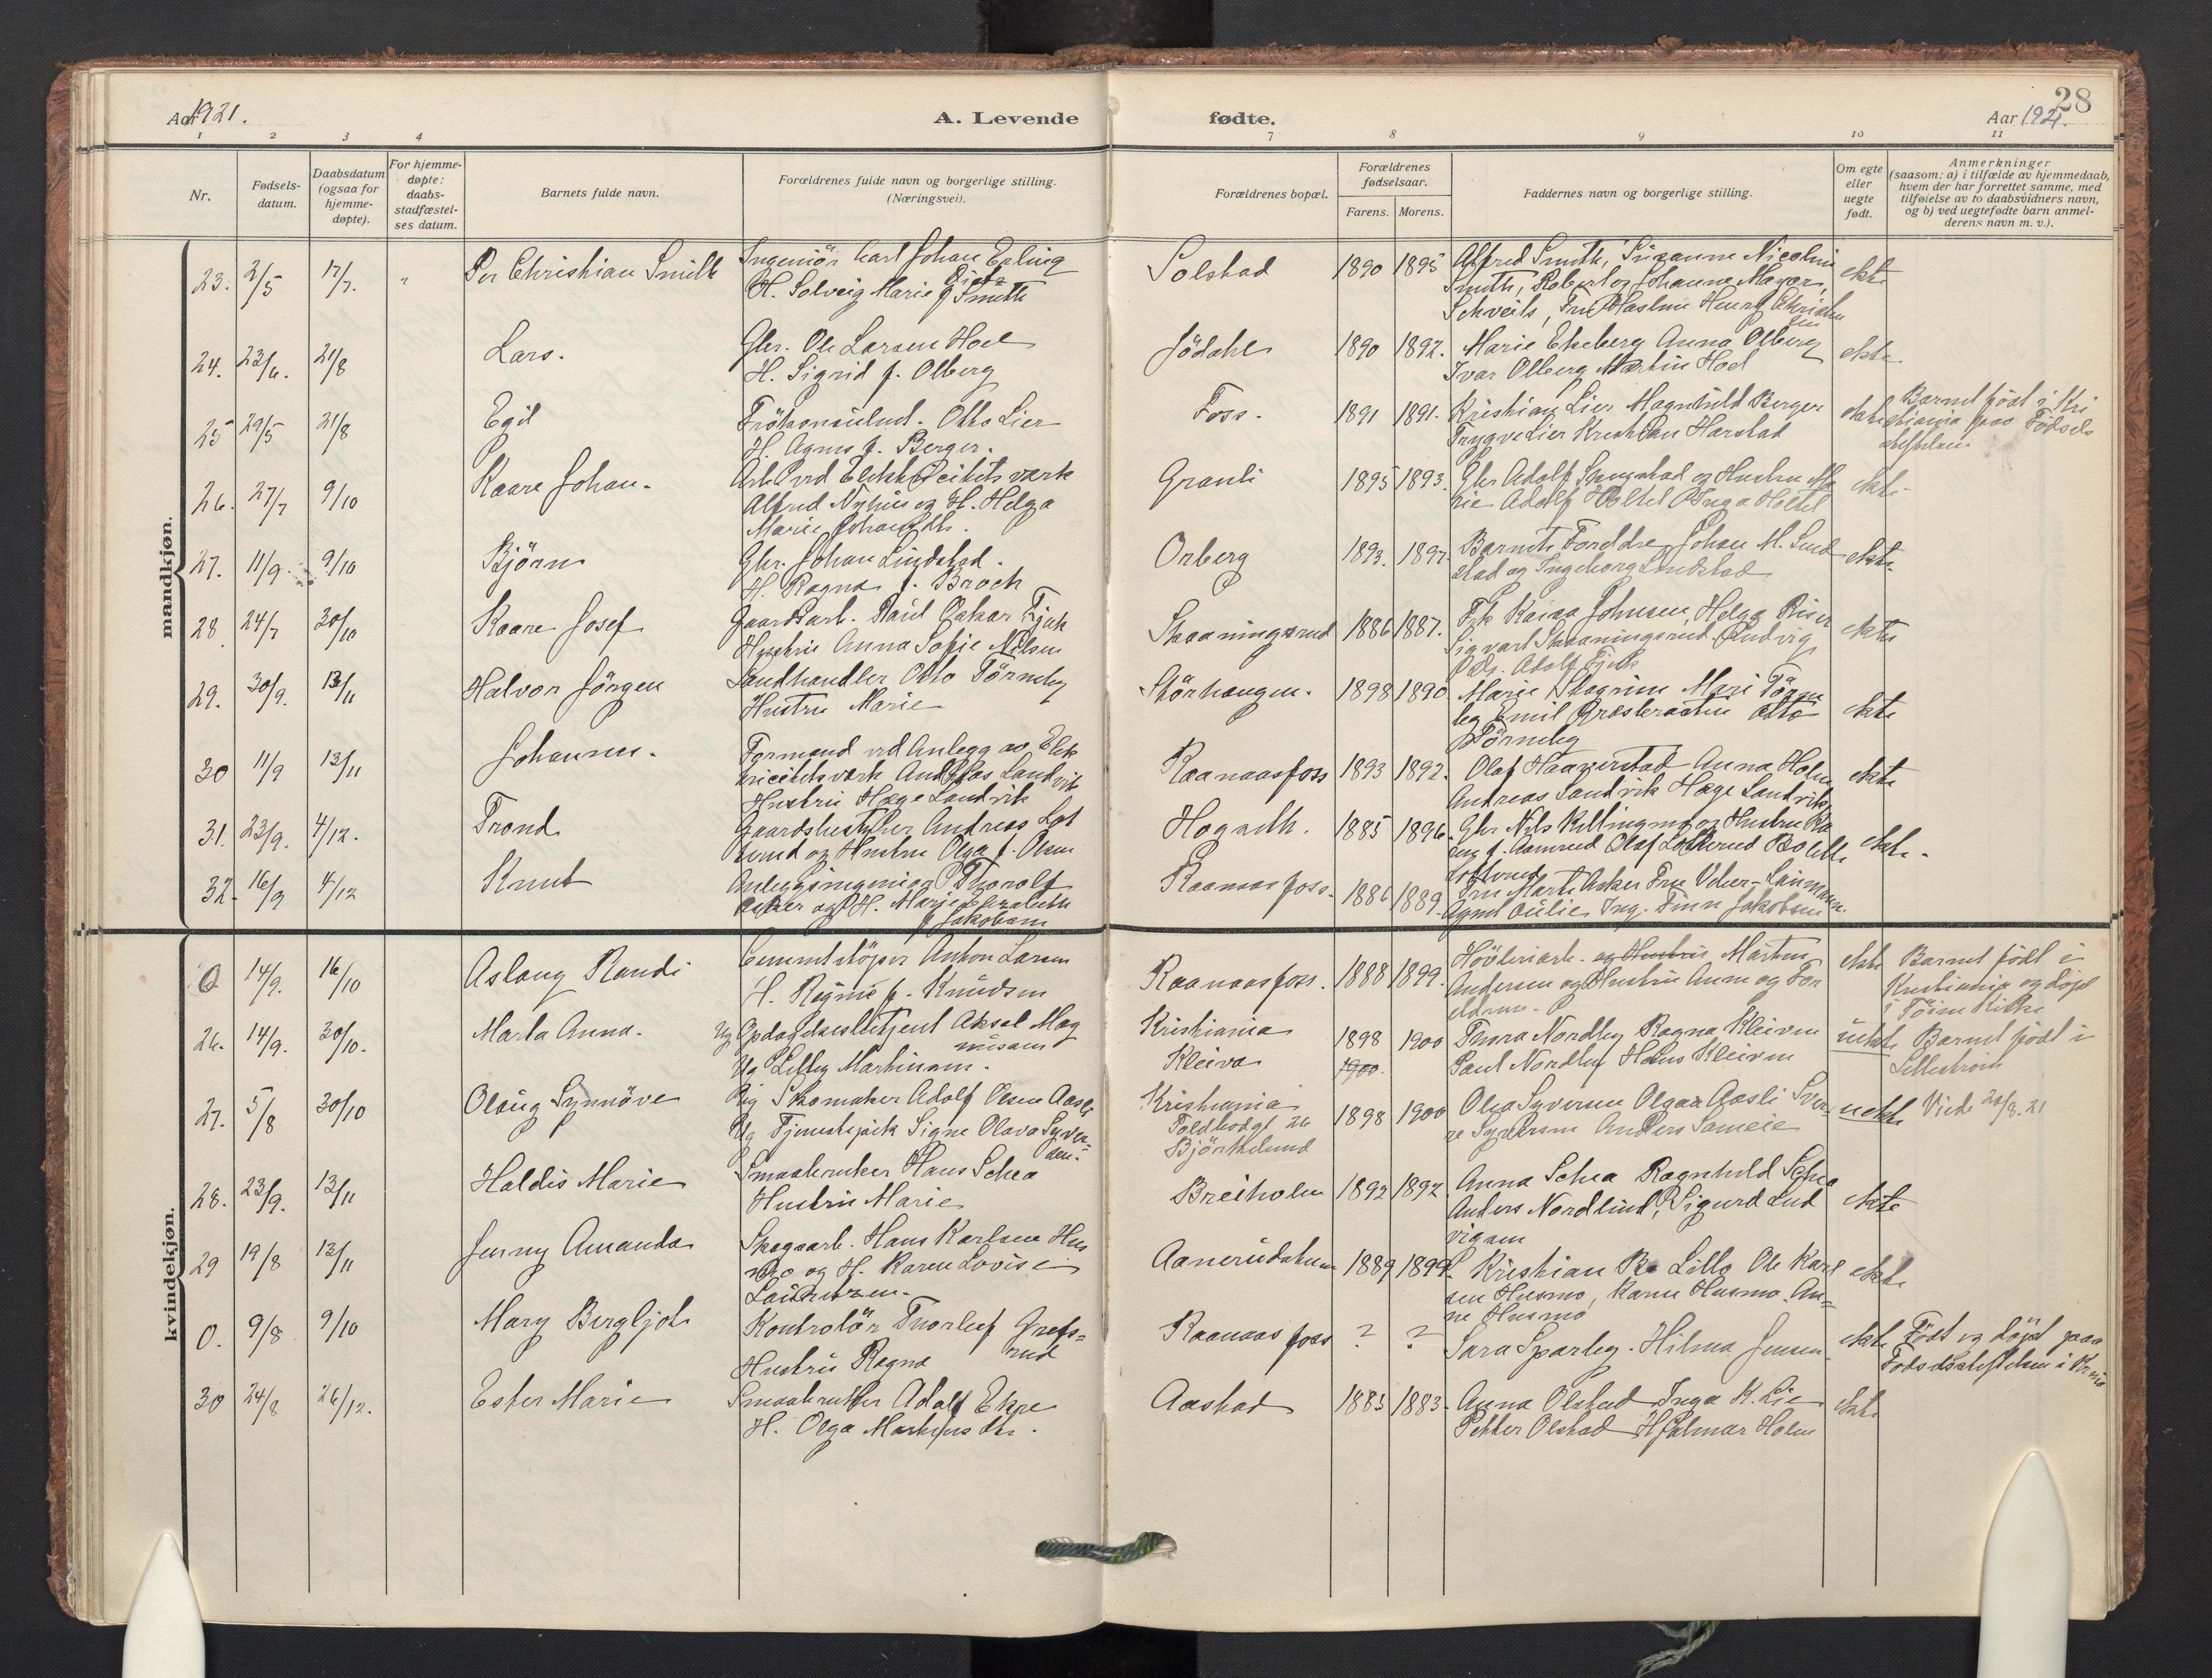 Aar 1921.
A. Levende
fødte.
28
Aar 1921.
1 2 3 4 7 8 9 10 11
Nr.
Fødsels-
datum.
Daabsdatum
(ogsaa for
hjemme-
døpte).
For hjemme-
døpte:
daabs-
stadfæstel-
ses datum.
Barnets fulde navn.
Forældrenes fulde navn og borgerlige stilling.
(Næringsvei).
Forældrenes bopæl.
Forældrenes
fødselsaar.
Farens. Morens.
Faddernes navn og borgerlige stilling.
Om egte
eller
uegte
født.
Anmerkninger
(saasom: a) i tilfælde av hjemmedaab,
hvem der har forrettet samme, med
tilføielse av to daabsvidners navn,
og b) ved uegtefødte barn anmel-
derens navn m. v.).
mandkjøn.
23. 2/5 17/7. " Per Christian Smith
Ingeniör Carl Johan Erling
H. Solveig Marie f. Smith
Solstad 1890 1895
Alfred Smith, Susanne Nicoline
Smith, Robert og Johanne Mayer,
Schveits, Fru Henny Christen
sen
ekte
24. 23/6. 21/8 Lars.
Gbr. Ole Larsen Hoel
H. Sigrid f. Olberg
Jödahl 1890 1892.
Marie Ekeberg Anna Olberg
Ivar Olberg Martin Hoel
ekte.
25 29/5 21/8 Egil
Frökonsulent. Otto Lier
H. Agnes f. Berger.
Foss. 1891 1891.
Kristian Lier Magnhild Berger
Trygve Lier Kristian Harstad
ekte
Barnet födt i Kri
stiania paa Födsels
stiftelsen
26. 27/7 9/10 Kaare Johan.
Arb. ved Elektricitetsverk
Alfred Nyhus og H. Helga
Marie Johansdtr.
Granli 1895 1893.
Gbr Adolf og Hustru Ma
rie Adolf Holtet Inga Holtet
ekte.
27. 11/9. 9/10 Björn
Gbr. Johan Lindstad.
H. Ragna f. Broch
Orberg 1893. 1897.
Barnets Foreldre, Johan M. Lind
stad og Ingeborg Lindstad
ekte.
28 24/7 30/10 Kaare Josef
Gaardsarb. Paul Oskar Fjuk
Hustru Anna Sofie Nilsen
Skaaningsrud 1886 1887.
Frk Kaisa Johnsen, Helga Riser
Sigvart Skaaningsrud Ludvig
Adolf Fjuk
ekte
29. 30/9. 13/11 Halvor Jörgen
Landhandler Otto Törneby
Hustru Marie
Störhaugen. 1898 1890.
Marie Skogrim Mari Törne
by Emil Otto
Törneby
ekte
30 11/9 13/11 Johannes.
Formand ved Anlegg av Elek
tricitetsverk Andreas Landvik
Hustru Hege Landvik
Raanaasfoss 1893 1892.
Olaf Haaverstad Anna Holm
Andreas Landvik Hege Landvik.
ekte
31. 23/9. 4/12. Trond
Gaardsbestyrer Andreas Lot
terud og Hustru Olga f. Olsen
Hogseth. 1885 1896.
Gbr Nils Killingmo og Hustru Ka
ren f. Aamrud Olaf Lotterud Bolette
Lotterud
ekte.
32. 16/9 4/12 Knut
Anleggsingeniør Thorolf
Asker og H. Marie Elisabeth
f. Jakobsen
Raanaasfoss. 1886 1889.
Fru Marti Asker Fru Ueker-Lausmann.
Agnes Aulie Ing. Finn Jakobsen
kvindekjøn.
0 14/9. 16/10 Aslaug Randi
Cementstöper Anton Larsen
H. Regine f. Knudsen
Raanaasfoss. 1888 1899.
Hövleriarb. og Hustru Marten
Andersen og Hustru Anna og For
eldrene.
ekte
Barnet födt i
Kristiania og döpt
i Töien Kirke
26. 14/9. 30/10. Marta Anna.
Ug Opdagelsesbetjent Aksel Mag
nussen
Ug Lilly Martinsen.
Kristiania
Kleiva
1898 1900
1900.
Thora Nordby Ragna Kleiven
Paul Nordby Hans Kleiven
uekte
Barnet födt i
Lilleström
27. 5/8 30/10 Olaug Synnöve
Ug Skomaker Adolf Olsen Aasli
Ug Tjenestepike Signe Olava Syver-
sen.
Kristiania
Toldbodgt 26
Björkelund
1898 1900
Olea Syversen Olga Aasli Sver-
re Syversen Anders Sameie
uekte
Viede 20/8. 21
28. 23/9. 13/11 Haldis Marie
Smaabruker Hans Schea
Hustru Marie
Breiholen 1892 1892.
Anna Schea Ragnhild Schea
Anders Nordlund, Sigurd Lud
vigsen
ekte
29 19/8 13/11 Jenny Amanda
Skogsarb. Hans Karlsen Hus
mo og H. Karen Lovise
Lauritzen.
Aamrudshuen 1889 1899.
Kristian Lillo Ole Karl
sen Husmo, Karen Husmo. An-
ne Husmo
ekte
0. 9/8 9/10 Mary Bergljot
Kontrolör Thorleif Grefs-
rud
Hustru Ragna
Raanaasfoss ? ?
Sara Sparby. Hilma Jensen
ekte
Födt og döpt paa
Födselsstiftelsen i Kr.nia
30 24/8 26/12. Ester Marie
Smaabruker Adolf Ekre
H. Olga Mathisdtr.
Aastad 1883 1883.
Anna Olstad Inga K. Lie
Petter Olstad Hjalmar Holm
ekte